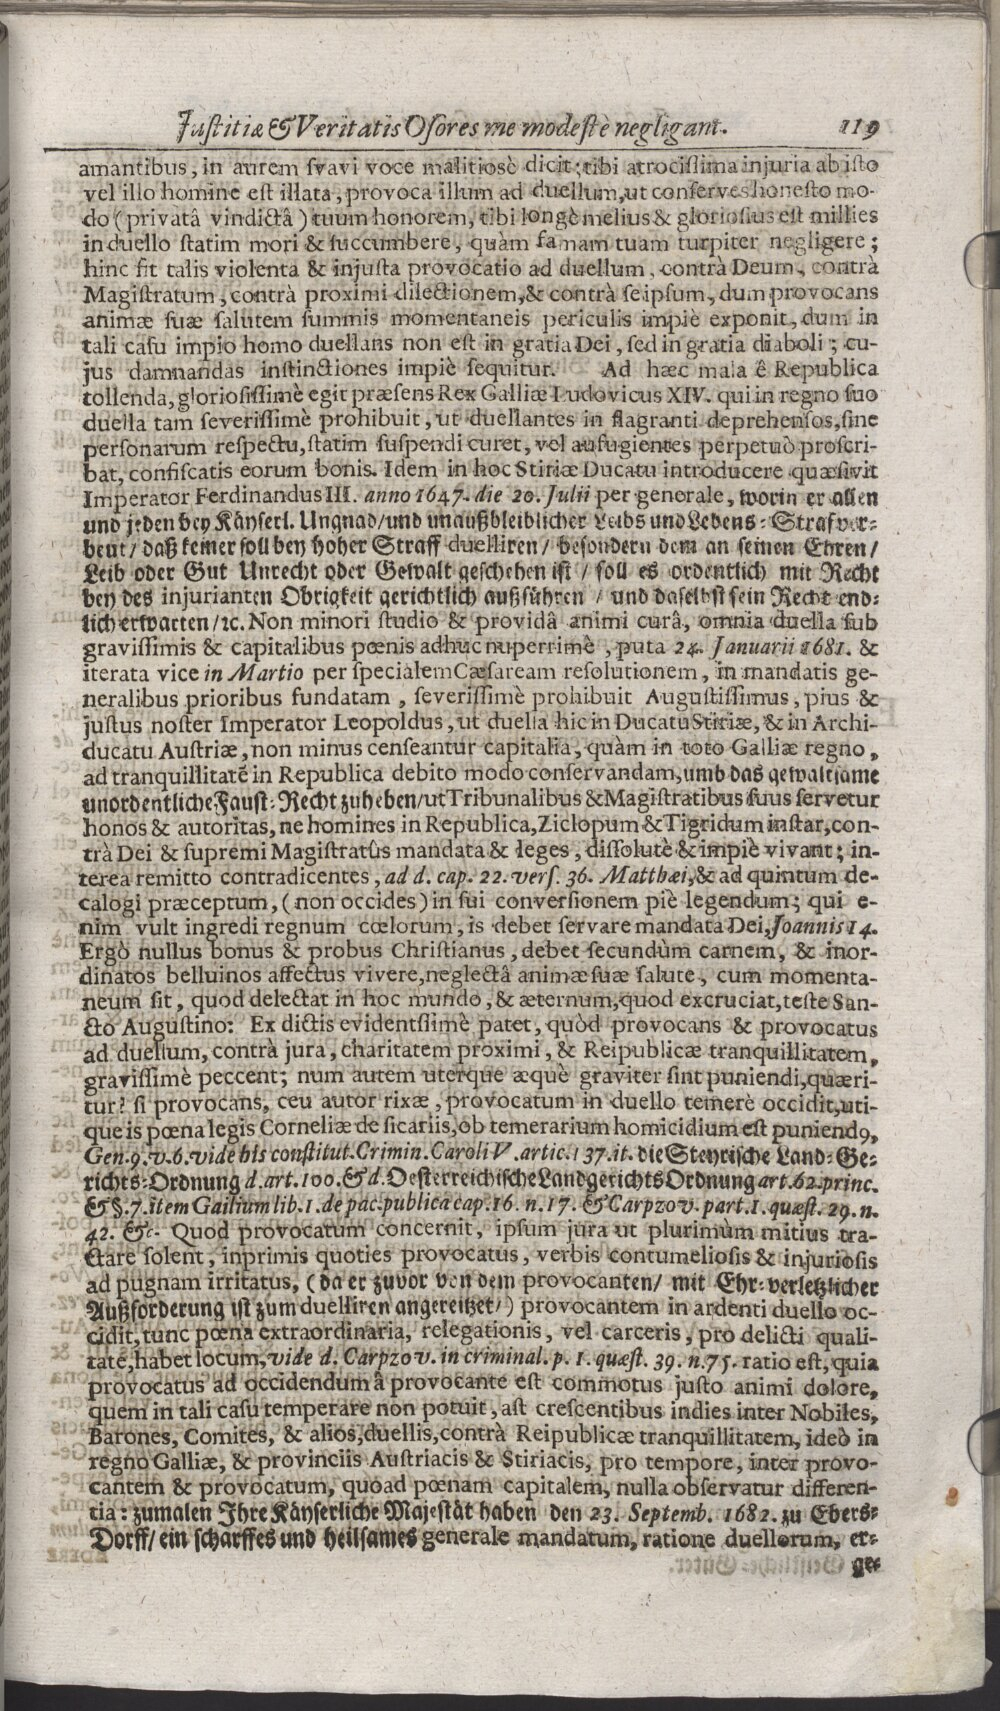 Justitiæ & Veritatis Osores me modestè negligant. 119
amantibus, in aurem svavi voce malitiosè dicit; tibi atrocissima injuria ab isto
vel illo homine est illata, provoca illum ad duellum, ut conserves honesto mo-
do (privatâ vindictâ) tuum honorem, tibi longè melius & gloriosius est millies
in duello statim mori & succumbere, quàm famam tuam turpiter negligere;
hinc fit talis violenta & injusta provocatio ad duellum, contrà Deum, contrà
Magistratum, contrà proximi dilectionem, & contrà seipsum, dum provocans
animæ suæ salutem summis momentaneis periculis impiè exponit, dum in
tali casu impio homo duellans non est in gratia Dei, sed in gratia diaboli; cu-
jus damnandas instinctiones impiè sequitur. Ad hæc mala ê Republica
tollenda, gloriosissimè egit præsens Rex Galliæ Ludovicus XIV. qui in regno suo
duella tam severissimè prohibuit, ut duellantes in flagranti deprehensos, sine
personarum respectu, statim suspendi curet, vel aufugientes perpetuò proscri-
bat, confiscatis eorum bonis. Idem in hoc Stiriæ Ducatu introducere quæsivit
Imperator Ferdinandus III. anno 1647. die 20. Julii per generale, worin er allen
und jeden bey Käyserl. Ungnad/ und unaußbleiblicher Leibs und Lebens-Straf ver-
beut/ daß keiner soll bey hoher Straff duelliren/ besondern dem an seinen Ehren/
Leib oder Gut Unrecht oder Gewalt geschehen ist/ soll es ordentlich mit Recht
bey des injurianten Obrigkeit gerichtlich außführen/ und daselbst sein Recht end-
lich erwarten/ ꝛc. Non minori studio & providâ animi curâ, omnia duella sub
gravissimis & capitalibus pœnis adhuc nuperrimè, puta 24. Januarii 1681. &
iterata vice in Martio per specialem Cæsaream resolutionem, in mandatis ge-
neralibus prioribus fundatam, severissimè prohibuit Augustissimus, pius &
justus noster Imperator Leopoldus, ut duella hic in Ducatu Stiriæ, & in Archi-
ducatu Austriæ, non minus censeantur capitalia, quàm in toto Galliæ regno,
ad tranquillitatē in Republica debito modo conservandam, umb das gewaltsame
unordentliche Faust-Recht zu heben/ ut Tribunalibus & Magistratibus suus servetur
honos & autoritas, ne homines in Republica, Ziclopum & Tigridum instar, con-
trà Dei & supremi Magistratûs mandata & leges, dissolutè & impiè vivant; in-
terea remitto contradicentes, ad d. cap. 22. vers. 36. Matthæi, & ad quintum de-
calogi præceptum, (non occides) in sui conversionem piè legendum; qui e-
nim vult ingredi regnum cœlorum, is debet servare mandata Dei, Joannis 14.
Ergò nullus bonus & probus Christianus, debet secundùm carnem, & inor-
dinatos belluinos affectus vivere, neglectâ animæ suæ salute, cum momenta-
neum sit, quod delectat in hoc mundo, & æternum, quod excruciat, teste San-
cto Augustino: Ex dictis evidentssimè patet, quòd provocans & provocatus
ad duellum, contrà jura, charitatem proximi, & Reipublicæ tranquillitatem,
gravissimè peccent; num autem uterque æquè graviter sint puniendi, quæri-
tur? si provocans, ceu autor rixæ, provocatum in duello temerè occidit, uti-
que is pœna legis Corneliæ de sicariis, ob temerarium homicidium est puniendꝰ,
Gen. 9. v. 6. vide bîs constitut. Crimin. Caroli V. artic. 137. it. die Steyrische Land-Ge-
richts-Ordnung d. art. 100. & d. Oesterreichische Landgerichts Ordnung art. 62. princ.
& §. 7. item Gailium lib. 1. de pac. publica cap. 16. n. 17. & Carpzov. part. 1. quæst. 29. n.
42. &c. Quod provocatum concernit, ipsum jura ut plurimùm mitius tra-
ctare solent, inprimis quoties provocatus, verbis contumeliosis & injuriosis
ad pugnam irritatus, (da er zuvor von dem provocanten/ mit Ehr-verletzlicher
Außforderung ist zum duelliren angereitzet/) provocantem in ardenti duello oc-
cidit, tunc pœna extraordinaria, relegationis, vel carceris, pro delicti quali-
tate, habet locum, vide d. Carpzov. in criminal. p. 1. quæst. 39. n. 75. ratio est, quia
provocatus ad occidendum â provocante est commotus justo animi dolore,
quem in tali casu temperare non potuit, ast crescentibus indies inter Nobiles,
Barones, Comites, & alios, duellis, contrà Reipublicæ tranquillitatem, ideò in
regno Galliæ, & provinciis Austriacis & Stiriacis, pro tempore, inter provo-
cantem & provocatum, quoad pœnam capitalem, nulla observatur differen-
tia: zumalen Ihre Käyserliche Majestät haben den 23. Septemb. 1682. zu Ebers-
Dorff/ ein scharffes und heilsames generale mandatum, ratione duellorum, er-
ge-